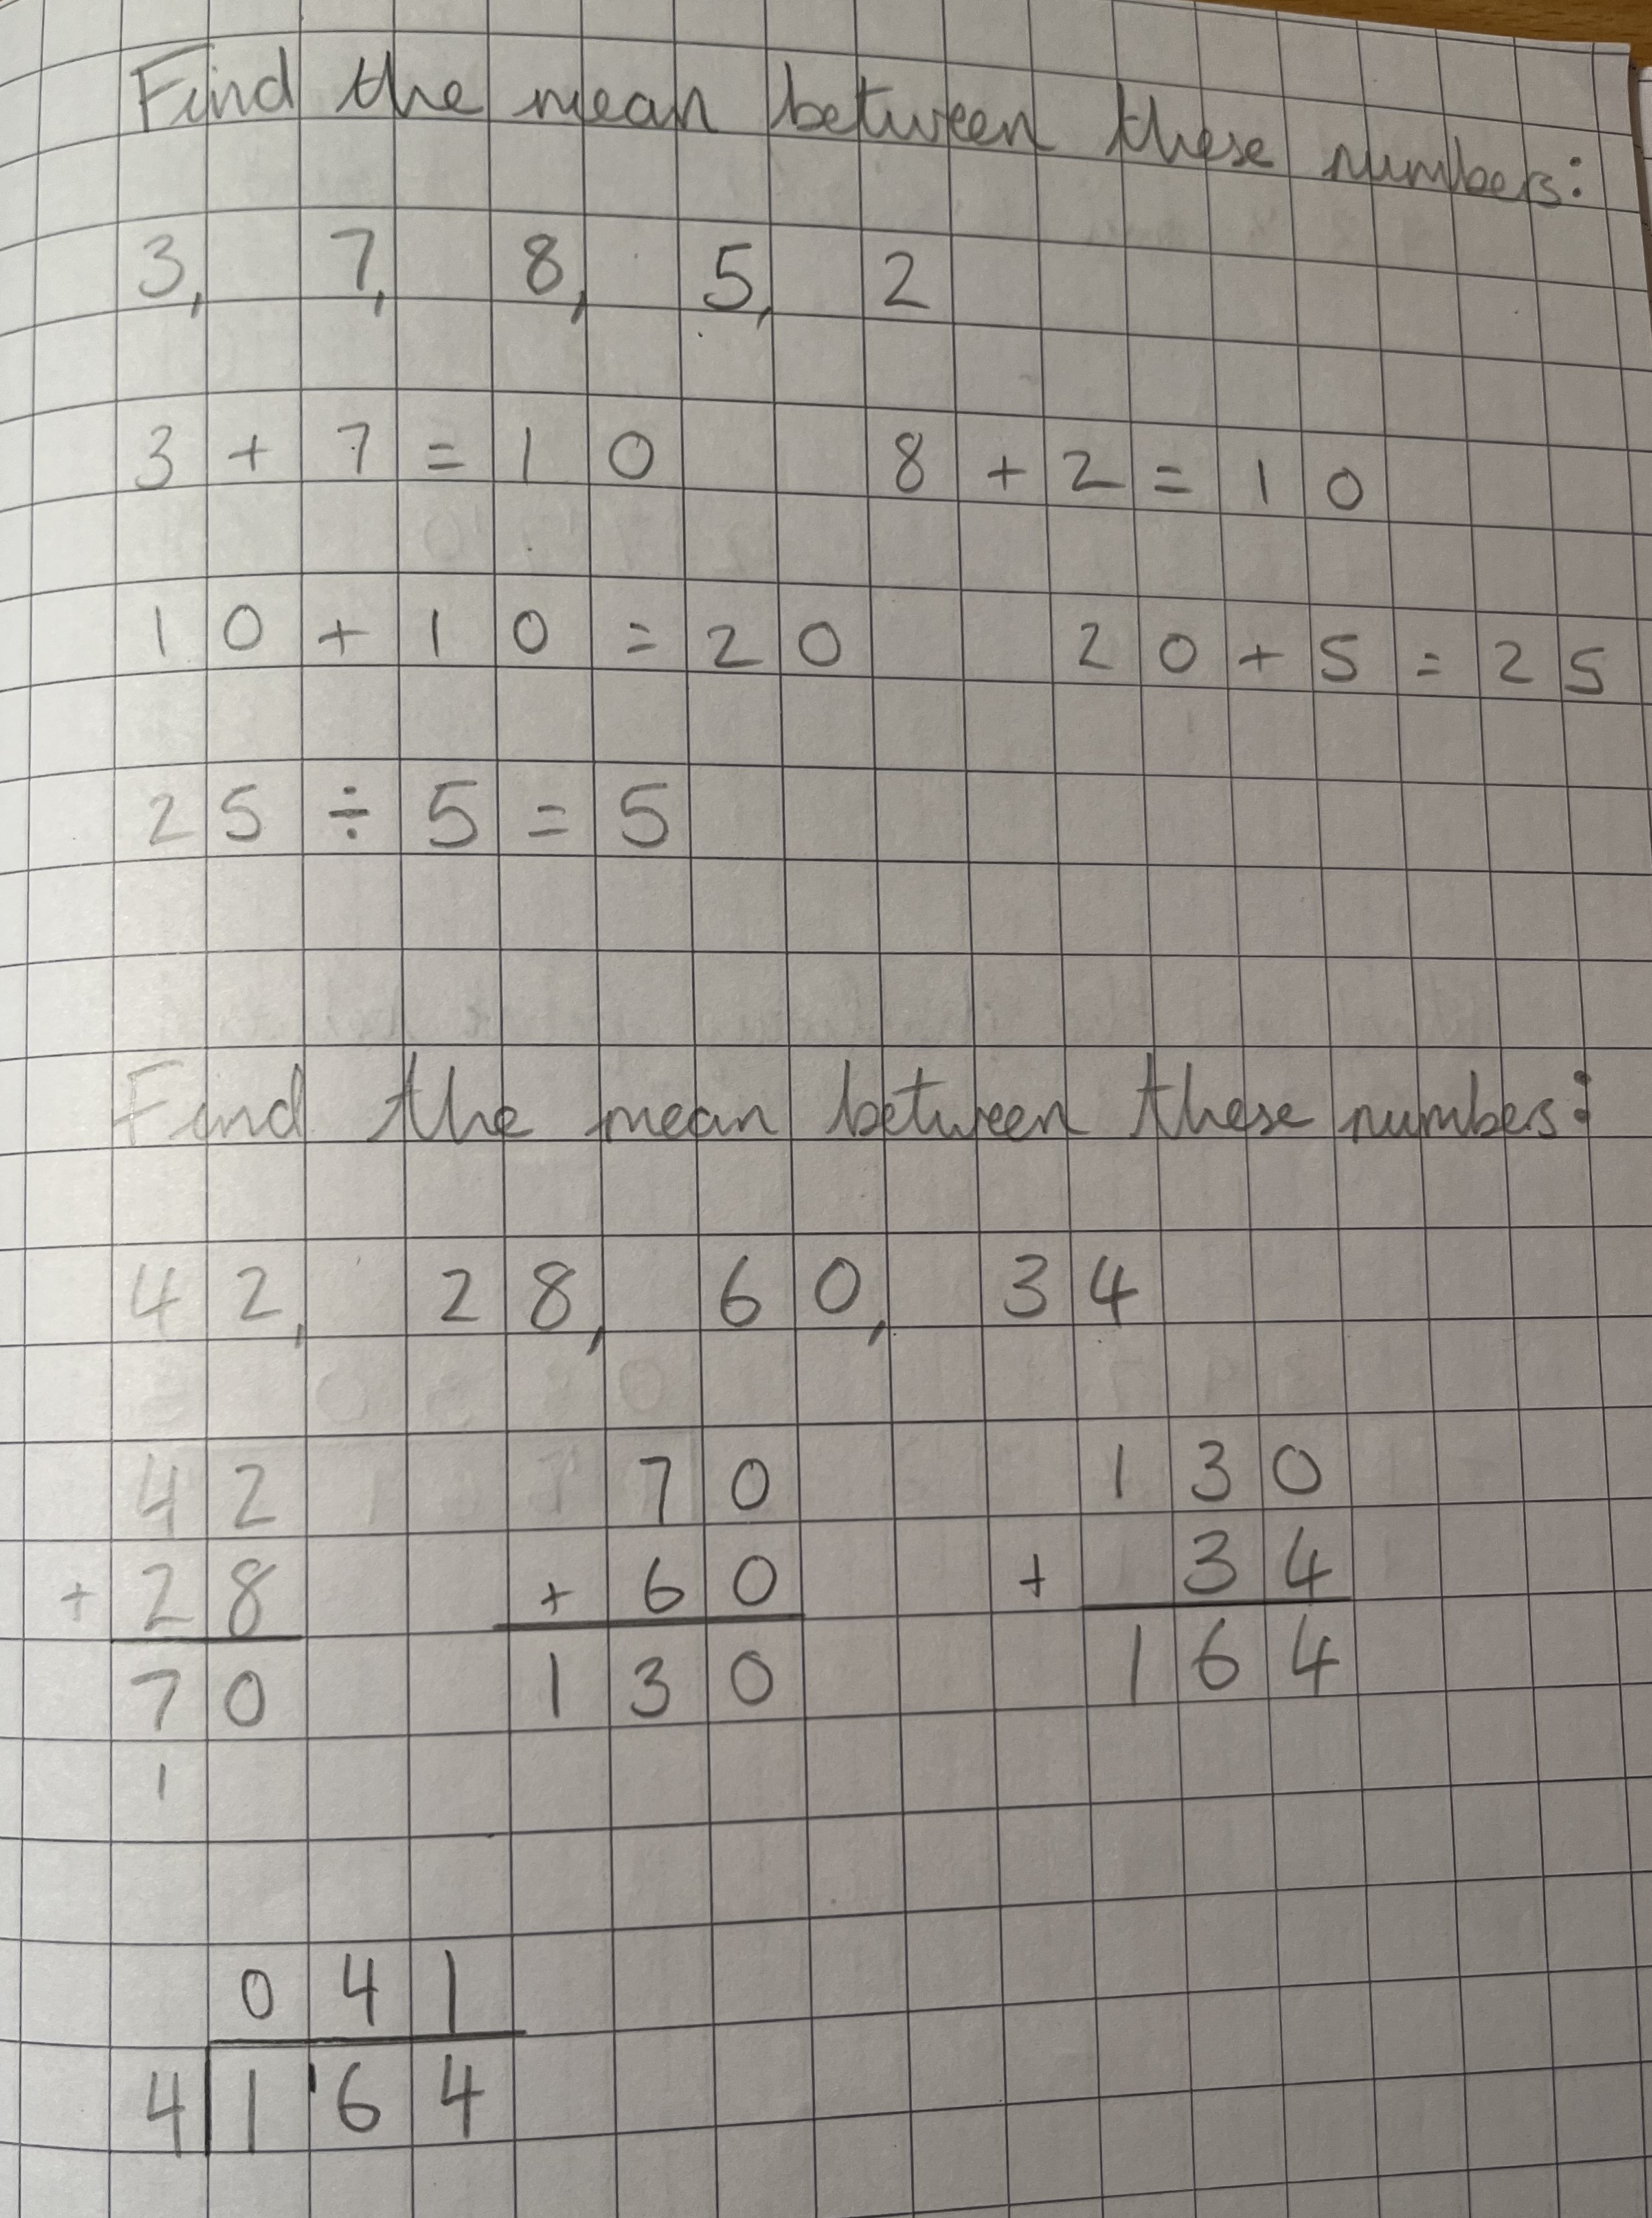 Find the mean between these numbers:
3, 7, 8, 5, 2
3 + 7 = 10 8 + 2 = 10
10 + 10 = 20 20 + 5 = 25
25 ÷ 5 = 5
Find the mean between these numbers:
42, 28, 60, 34
42 70 130
+ 28 + 60 + 34
70 130 164
1
041
4 1 1 6 4